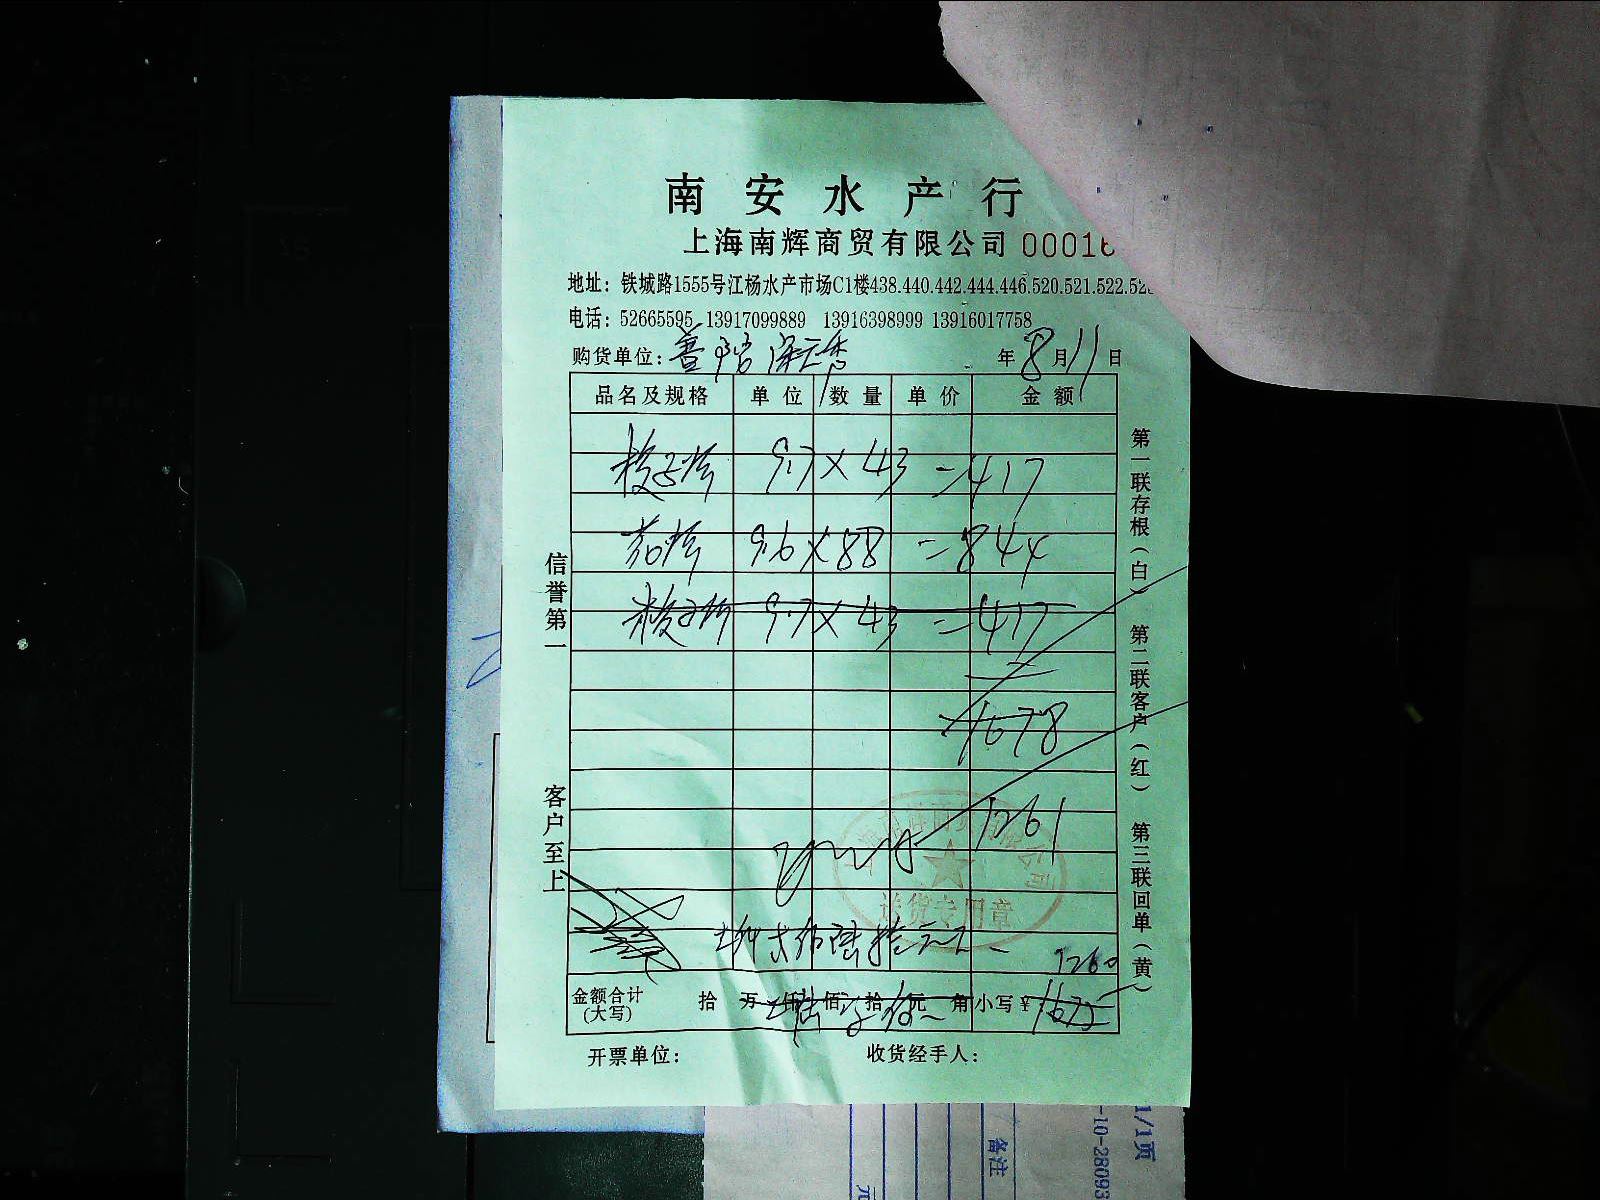 南安水产行
上海南辉商贸有限公司 00016
地址：铁城路1555号江杨水产市场C1楼438.440.442.444.446.520.521.522.52
电话：52665595 13917099889 13916398999 13916017758
购货单位： 年 8 月 11 日
品名及规格 单位 数量 单价 金额
9.7 × 43 = 417
9.6 × 88 = 844
梭子 9.7 × 43 = 417
1678
1261
送货专用章
1260
金额合计(大写) 拾 万 仟 佰 拾 元 角 小写¥ 1675
开票单位： 收货经手人：
信誉第一
客户至上
第一联存根（白） 第二联客户（红） 第三联回单（黄）
1/1页
-10-28093
备注
元